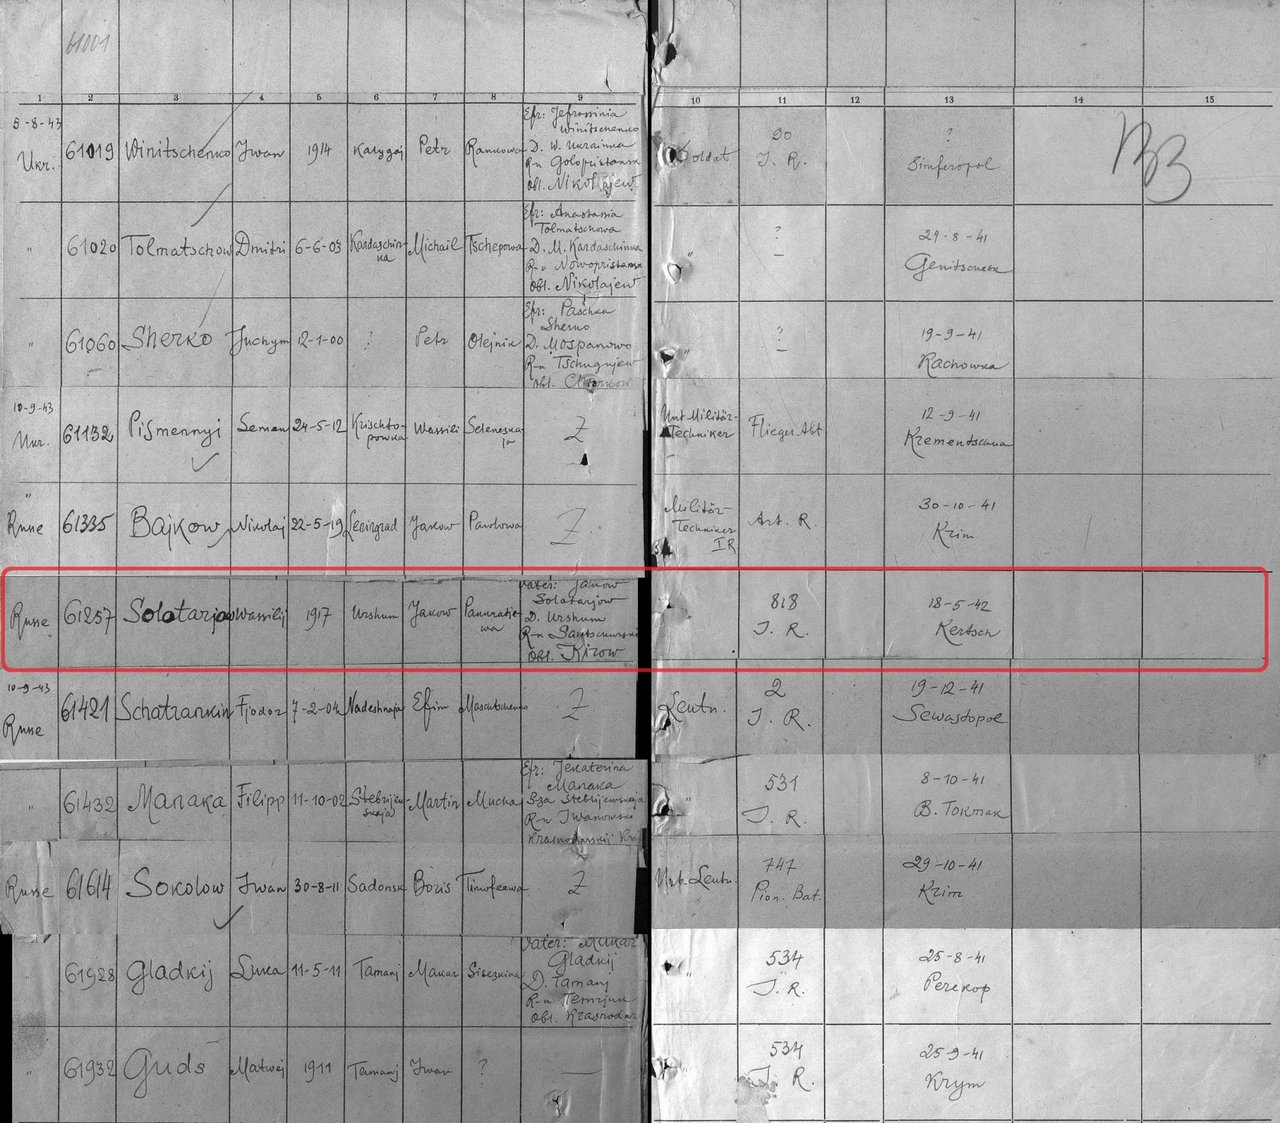 61001
1 2 3 4 5 6 7 8 9 10 11 12 13 14 15
5-8-43
Ukr. 61019 Winitschenko Iwan 1914 Kalygaj Petr
Efr: Jefrossinia
Winitschenko
D. W. Ukrainka
R-n Golopristansk
Obl. Nikolajew
Soldat
90
I. R.
?
Simferopol
" 61020 Tolmatschow Dmitri 6-6-03 Kardaschin-
ka
Michail Tschepowa
Efr: Anastasia
Tolmatschowa
D. M. Kardaschinka
R-n Nowopristansk
Obl. Nikolajew
"
?
–
29-8-41
Genitschesk
" 61060 Sherko Juchym 12-1-00 ? Petr Olejnik
Efr: Paschka
Sherko
D. Mospanowo
R-n Tschugujew
Obl. Charkow
"
?
–
19-9-41
Rachowka
10-9-43
Ukr. 61132 Pismennyj Semen 24-5-12 Krischto-
powka
Wassili
Z
Unt-Militär-
Techniker
Flieger Abt
12-9-41
Krementschuk
"
Russe 61335 Bajkow Nikolaj 22-5-19 Leningrad Jakow Pawlowa Z
Militär-
Techniker
I R.
Art. R.
30-10-41
Krim
Russe 61257 Solotarjow Wassilij 1917 Urshum Jakow
Vater: Jakow
Solotarjow
D. Urshum
R-n
Obl. Kirow
"
818
I. R.
18-5-42
Kertsch
10-9-43
Russe 61421 Schatrankin Fjodor 7-2-04 Nadeshnaja Efim Z
Leutn.
2
I. R.
19-12-41
Sewastopol
" 61432 Manaka Filipp 11-10-02 Steblijew-
skaja
Martin Mucha
Efr: Jekaterina
Manaka
Sza Steblijewskaja
R-n Iwanowski
Krasnodarskij Kr.
"
531
I. R.
8-10-41
B. Tokmak
Russe 61614 Sokolow Iwan 30-8-11 Sadonsk Boris Timofeewa Z
Unt. Leutn.
747
Pion. Bat.
29-10-41
Krim
" 61928 Gladkij Luka 11-5-11 Tamanj Makar
Vater: Makar
Gladkij
D. Tamanj
R-n Temrjuk
Obl. Krasnodar
"
534
I. R.
25-8-41
Perekop
" 61932 Guds Matwej 1911 Tamanj Iwan ? —
"
534
I. R.
25-9-41
Krym